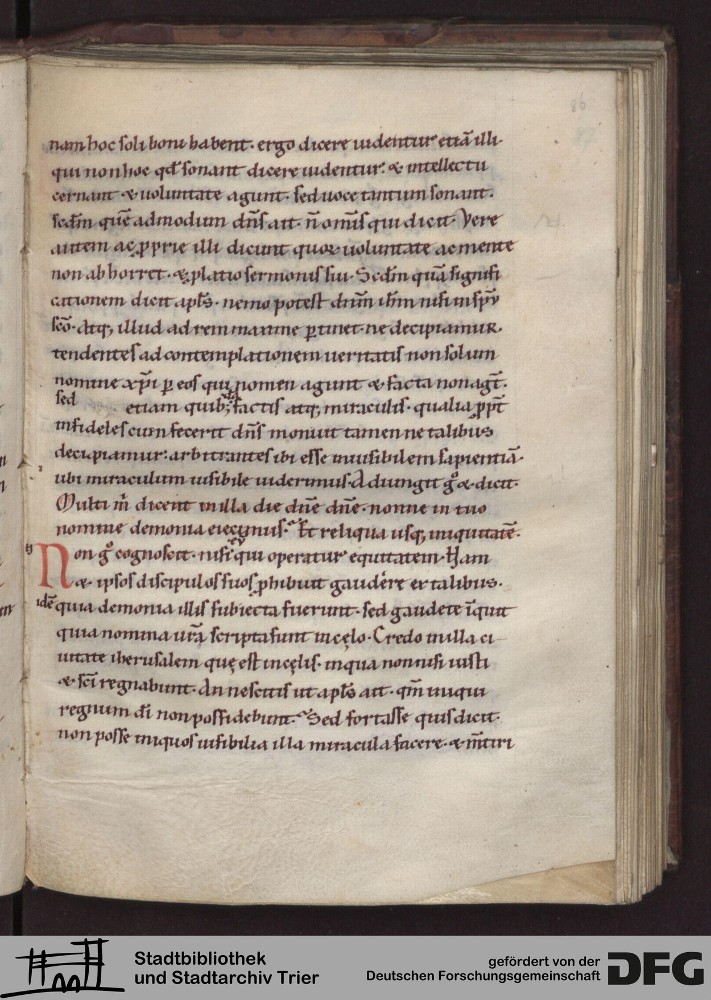 nam hoc soli boni habent. ergo dicere uidentur etiā illi.
qui non hoc qđ sonant dicere uidentur. & intellectu
cernant & uoluntate agunt. sed uoce tantum sonant.
scđm quē admodum dn̄s ait. n̄ om̄is qui dicit. Vere
autem ac ꝓprie illi dicunt quoꝝ uoluntate ac mente
non abhorret. & platio sermonis sui. Scđm quā signifi
cationem dicit apl̄s. nemo potest dn̄m ih̄m nisi in sp̄u
sc̄o. Atq; illud ad rem maxime ꝑtinet. ne decipiamur.
tendentes ad contemplationem ueritatis non solum
nomine xp̄i ꝑ eos qui nomen agunt & facta non agt̄.
sed etiam quib; factis atq; miraculis. qualia ꝓpt̄
infideles cum fecerit dn̄s monuit tamen ne talibus
decipiamur. arbitrantes ibi esse inuisibilem sapientiā.
ubi miraculum uisibile uiderimus. Adiungit gͦ & dicit.
Multi m̄ dicent in illa die dn̄e dn̄e. nonne in tuo
nomine demonia eiecimus. Et reliqua usq; iniquitatē.
Non gͦ cognoscit. nisi qui operatur equitatem. Nam
& ipsos discipulos suos ꝓhibuit gaudere ex talibus.
idē quia demonia illis subiecta fuerunt. sed gaudete īquit
quia nomina ur̄a scripta sunt in cęlo. Credo in illa ci
uitate iherusalem quę est in cęlis. in qua non nisi iusti
& sc̄i regnabunt. An nescitis ut apl̄s ait. qm̄ iniqui
regnum di̅ non possidebunt. Sed fortasse quis dicit.
non posse iniquos uisibilia illa miracula facere. & m̄tiri
Stadtbibliothek
und Stadtarchiv Trier
gefördert von der
Deutschen Forschungsgemeinschaft
DFG